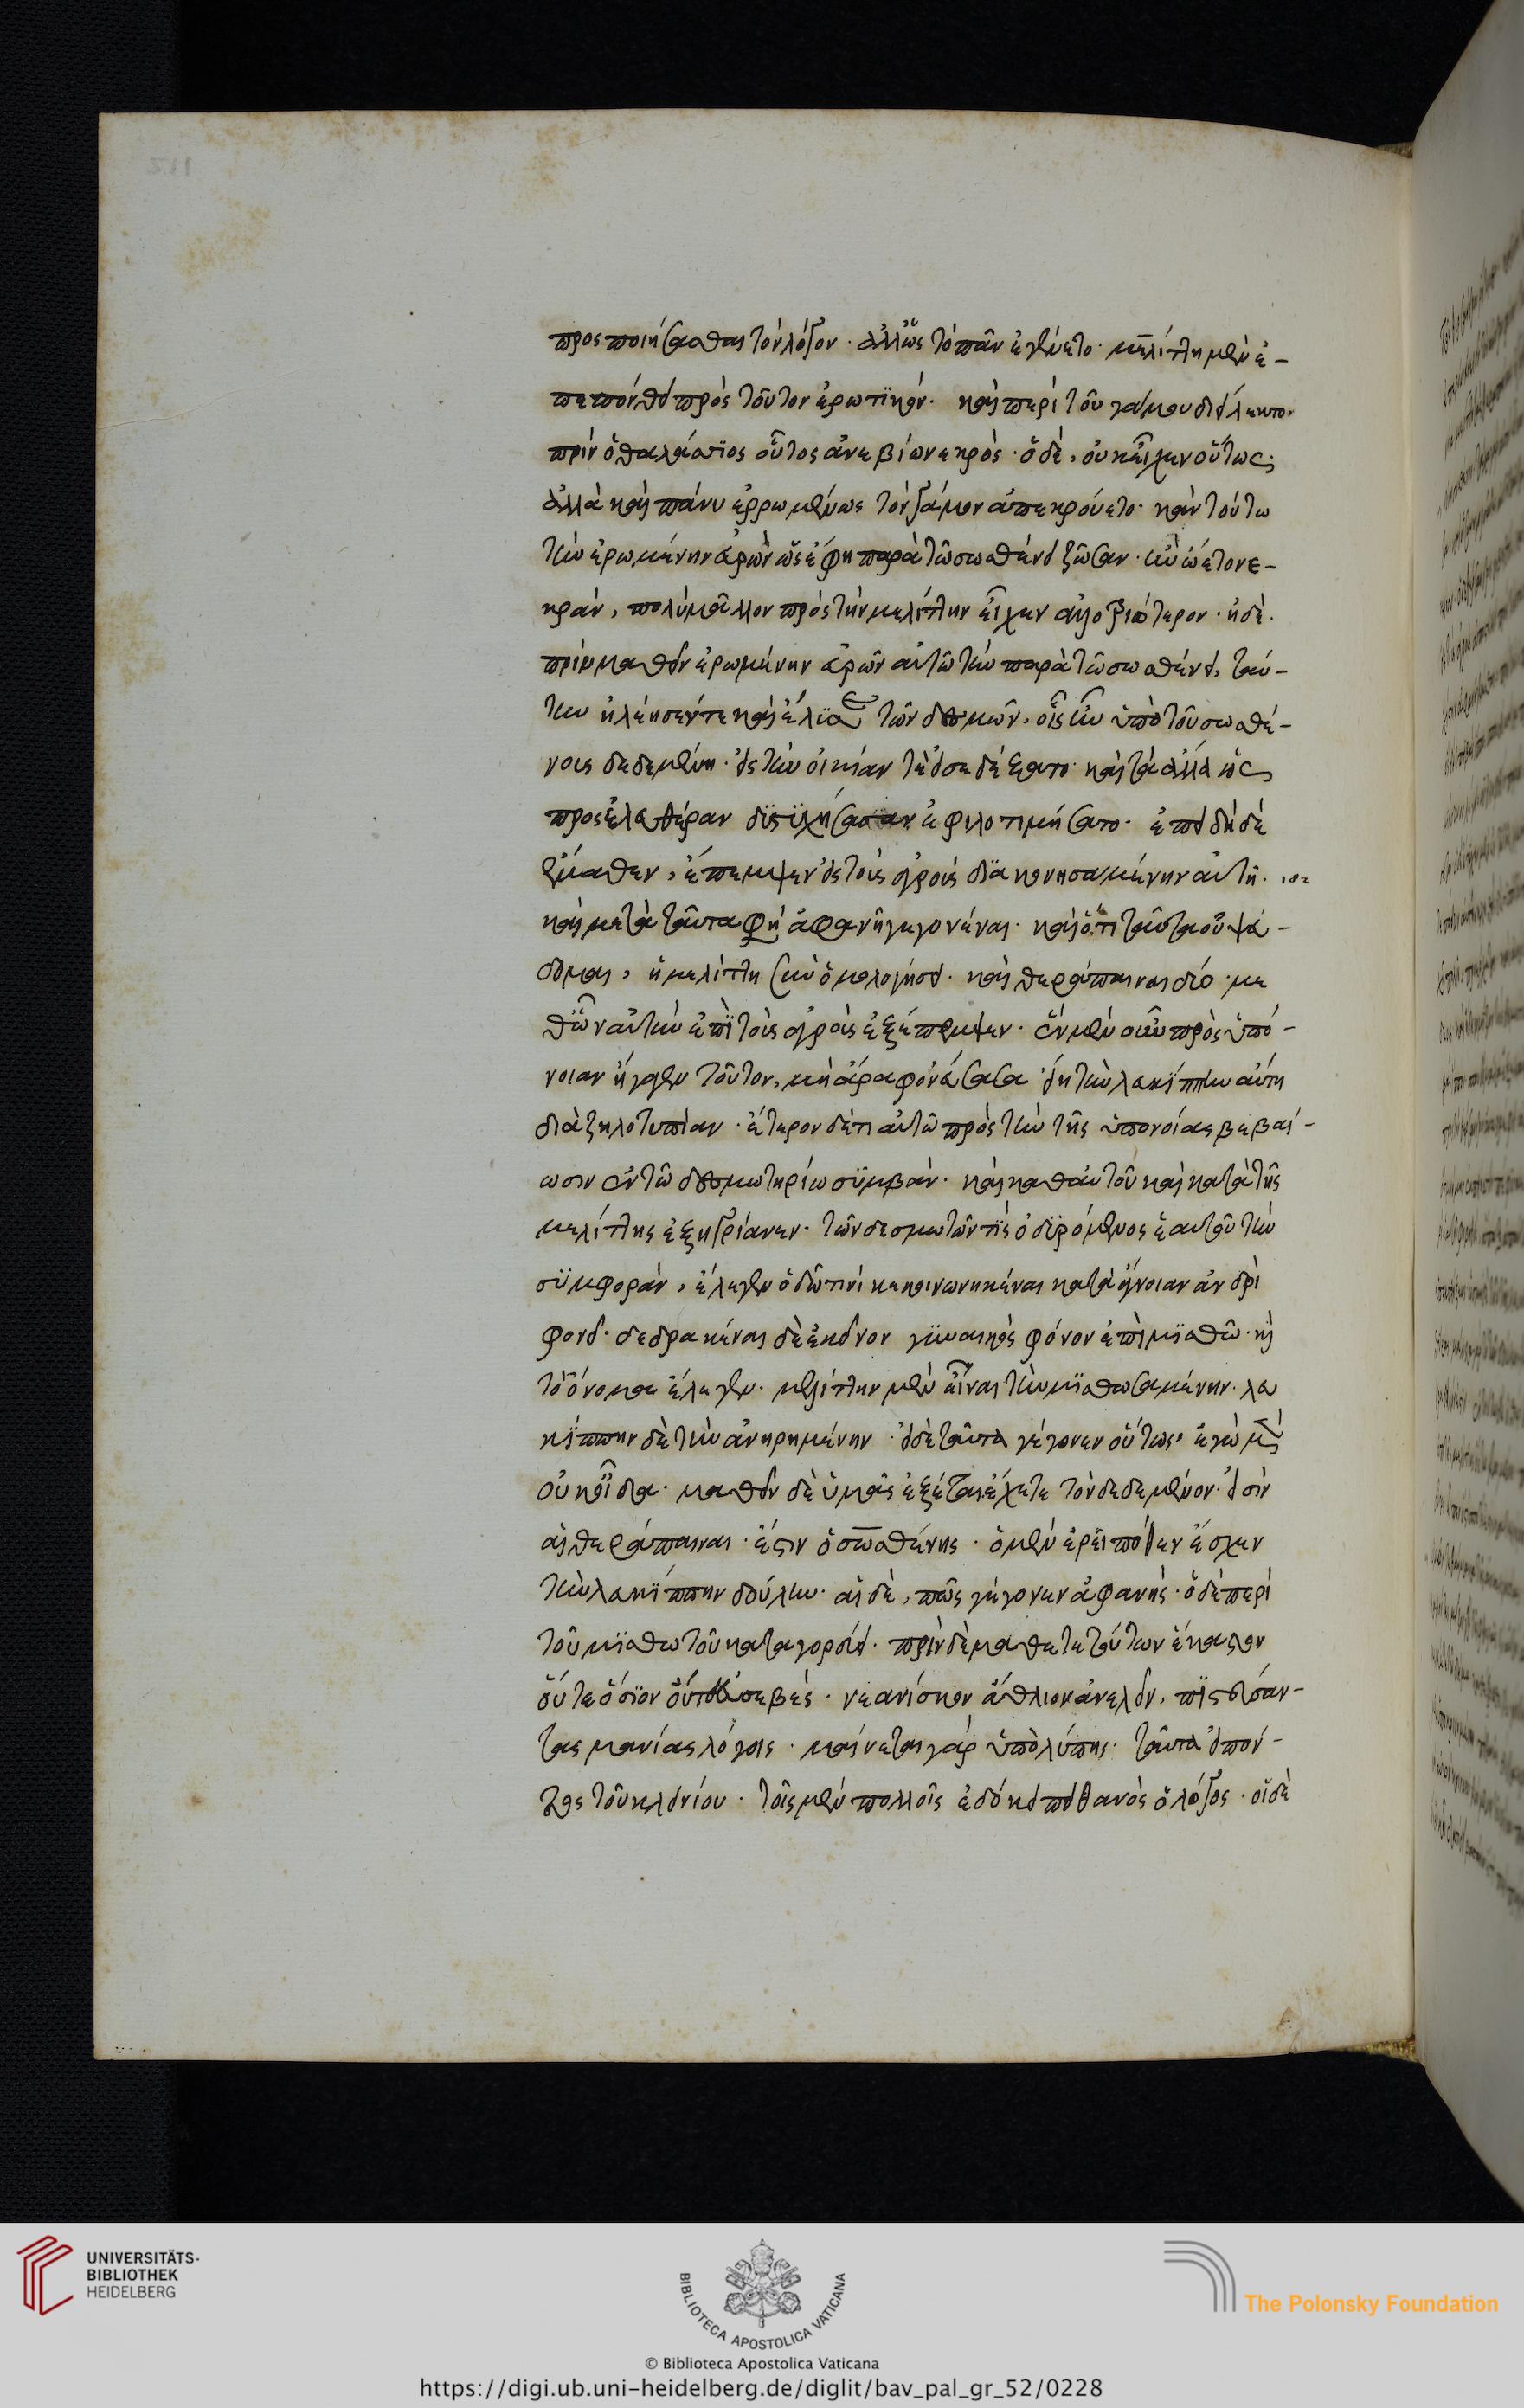 προσποιήσασθαι τὸν λόγον. ἄλλως τὸ πᾶν ἐγένετο. μελίττη μὲν ἐ-
πεπόνθει πρὸς τοῦτον ἐρωτικόν. καὶ περὶ τοῦ γάμου διείλεκτο.
πρὶν ὁ θαλάττιος οὗτος ἀνεβίω νεκρός. ὁ δὲ, οὐκ εἶχεν οὕτως.
ἀλλὰ καὶ πάνυ ἐρρωμένως τὸν γάμον ἀπεκρούετο. κἂν τούτω
τὴν ἐρωμένην εὑρὼν ὡς ἔφη παρὰ τῶ σωσθένει ζῶσαν. ἣν ὤετο νε-
κράν, πολὺ μᾶλλον πρὸς τὴν μελίττην εἶχεν ἀλλοτριώτερον. ἡ δὲ.
πρὶν μαθεῖν ἐρωμένην εὑρὼν αὐτῶ τὴν παρὰ τῶ σωσθένει, ταύ-
την ἠλέησέν τε καὶ ἔλυσε τῶν δεσμῶν. οἷς ἦν ὑπὸ τοῦ σωσθέ-
νους δεδεμένη. εἰς τὴν οἰκίαν τε εἰσεδέξατο. καὶ τὰ ἄλλα ὡς
πρὸς ἐλευθέραν δυστυχήσασαν ἐφιλοτιμήσατο. ἐπεὶ δὴ δὲ
ἔμαθεν, ἔπεμψεν εἰς τοὺς ἀγροὺς διακονησαμένην αὐτῆ.
καὶ μετὰ ταῦτα φὴ ἀφανῆ γεγονέναι. καὶ ὅτι ταῦτα οὐ ψεύ-
δομαι, ἡ μελίττη συνομολογήσει. καὶ θεράπαιναι δύο. με
θ' ὧν αὐτὴν ἐπὶ τοὺς ἀγροὺς ἐξέπεμψεν. ἓν μὲν οὖν πρὸς ὑπό-
νοιαν ἤγαγεν τοῦτον, μὴ ἄρα φονεύσασα εἴη τὴν λευκίππην αὐτὴ
διὰ ζηλοτυπίαν. ἕτερον δέ τι αὐτῶ πρὸς τὴν τῆς ὑπονοίας βεβαί-
ωσιν ἐν τῶ δεσμωτηρίω συμβὰν. καὶ καθ' αὑτοῦ καὶ κατὰ τῆς
μελίττης ἐξηγρίανεν. τῶν δεσμωτῶν τὶς ὀδυρόμενος ἑαυτοῦ τὴν
συμφορὰν, ἔλεγεν ὁδῶ τινὶ κεκοινωνηκέναι κατὰ ἄγνοιαν ἀνδρὶ
φονεῖ. δεδρακέναι δὲ ἐκεῖνον γυναικὸς φόνον ἐπὶ μισθῶ. καὶ
τὸ ὄνομα ἔλεγεν. μελίττην μὲν εἶναι τὴν μισθωσαμένην. λευ
κίππην δὲ τὴν ἀνηρημένην. εἰ δὲ ταῦτα γέγονεν οὕτως, ἐγὼ μὲν
οὐκ οἶδα. μαθεῖν δὲ ὑμᾶς ἐξέσται ἔχετε τὸν δεδεμένον. εἰσὶν
αἱ θεράπαιναι. ἔστιν ὁ σωσθένης. ὁ μὲν ἐρεῖ πόθεν ἔσχεν
τὴν λευκίππην δούλην. αἱ δὲ, πῶς γέγονεν ἀφανής. ὁ δὲ περὶ
τοῦ μισθωτοῦ καταγορεύει. πρὶν δὲ μάθετε τούτων ἕκαστον
οὔτε ὅσιον οὔτε εὐσεβὲς. νεανίσκον ἄθλιον ἀνελεῖν, πιστεύσαν-
τας μανίας λόγοις. μαίνεται γὰρ ὑπὸ λύπης. ταῦτα εἰπόν-
τος τοῦ κλεινίου. τοῖς μὲν πολλοῖς ἐδόκει πειθανὸς ὁ λόγος. οἱ δὲ
UNIVERSITÄTS-
BIBLIOTHEK
HEIDELBERG
BIBLIOTECA APOSTOLICA VATICANA
The Polonsky Foundation
© Biblioteca Apostolica Vaticana
https://digi.ub.uni-heidelberg.de/diglit/bav_pal_gr_52/0228